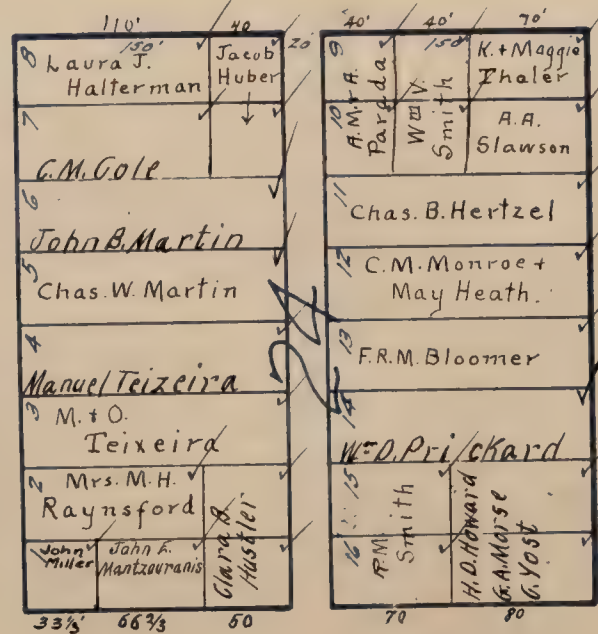 110' 40
150' 20'
8 Laura J.
Halterman
Jacob
Huber
7
C.M. Cole
6
John B. Martin
5
Chas. W. Martin
4
Manuel Teizeira
3
M. + O.
Teixeira
2
Mrs. M. H.
Raynsford
Clara B.
Hustler
1
John
Miller
John E.
Mantzouranis
33⅓' 66⅔ 50
24
40' 40' 70'
150'
9
10
A.M. + A.
Parada
Wm V.
Smith
K. + Maggie
Thaler
A.A.
Slawson
11
Chas. B. Hertzel
12
C.M. Monroe +
May Heath.
13
F.R.M. Bloomer
14
Wm D. Prickard
15
16
R.M.
Smith
H.D. Howard
G.A. Morse
G. Yost
70 80